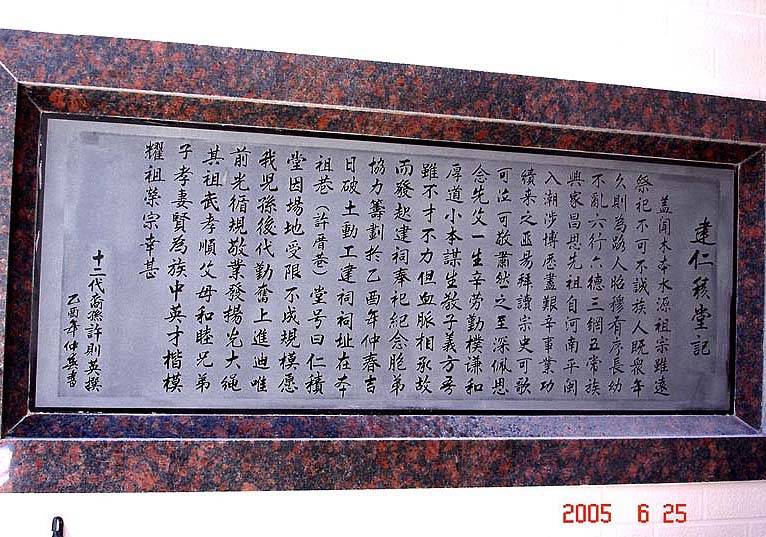 建仁積堂記
蓋聞木本水源祖宗雖遠
祭祀不可不誠族人既衆年
久則為路人昭穆有序長幼
不亂六行六德三綱五常族
興家昌思先祖自河南平閩
入潮涉博歷盡艱辛事業功
績来之不易拜讀宗史可歌
可泣可敬肅然之至深佩思
念先父一生辛劳勤樸謙和
厚道小本謀生教子義方吾
雖不才不力但血脈相承故
而發起建祠奉祀紀念胞弟
協力籌劃於乙酉年仲春吉
日破土動工建祠祠址在本
祖巷（許厝巷）堂号曰仁積
堂因場地受限不成規模愿
我児孫後代勤奮上進迪唯
前光循規敬業發揚光大绳
其祖武孝順父母和睦兄弟
子孝妻賢為族中英才楷模
耀祖榮宗幸甚
十二代裔孫許則英撰
乙酉年仲英書
2005 6 25